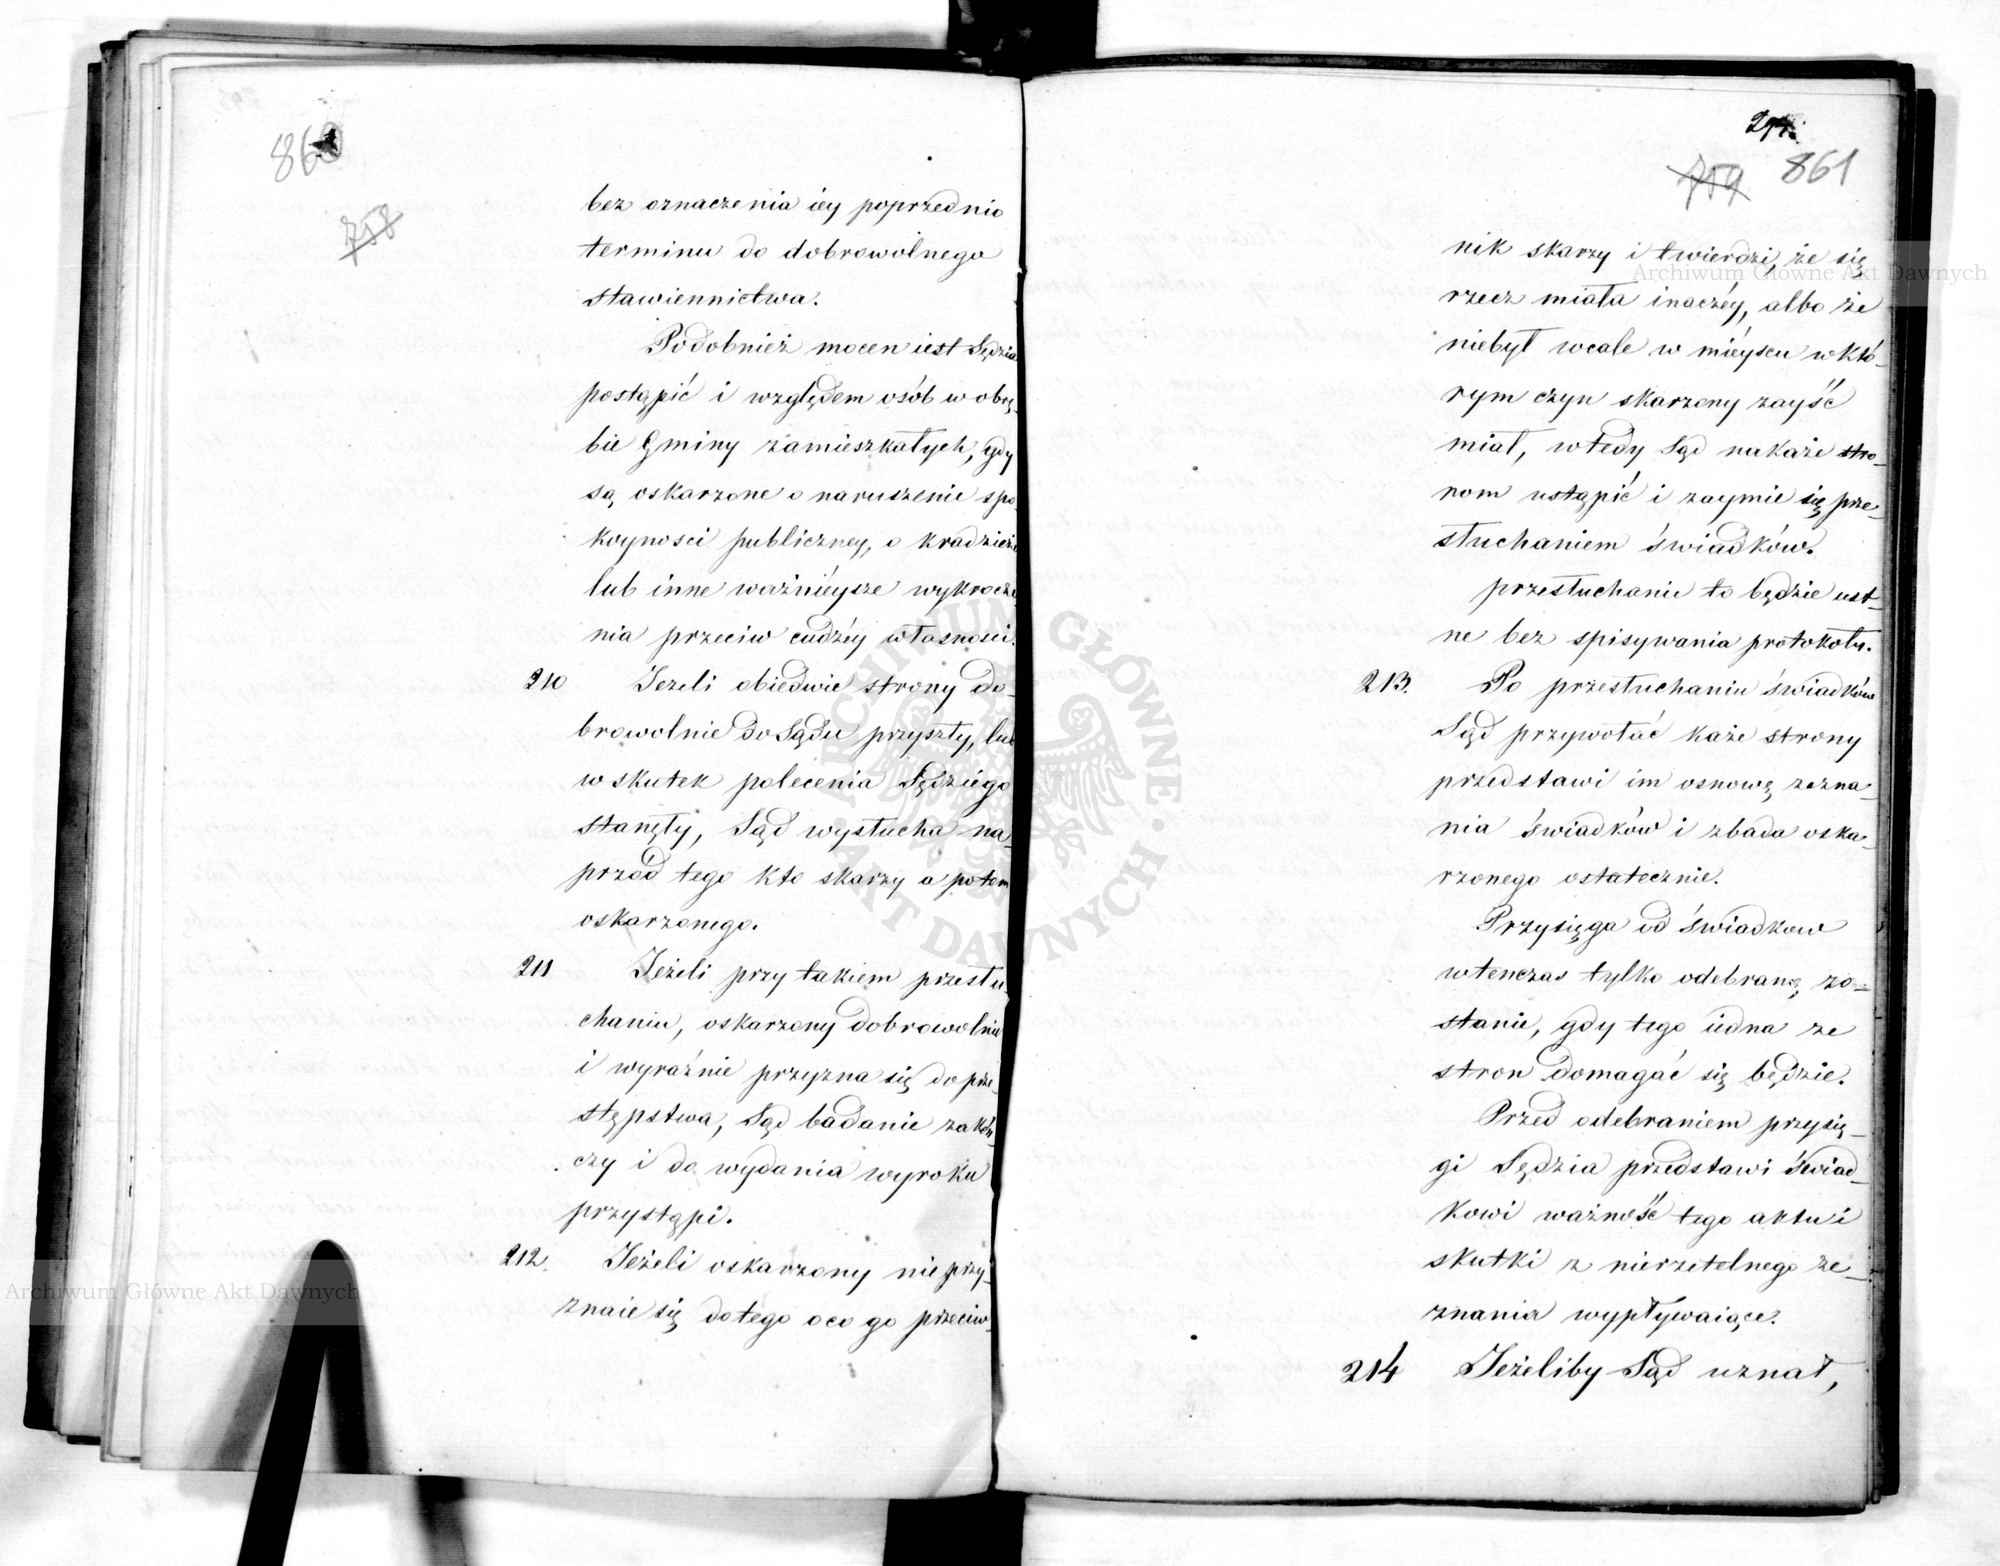 860
758
bez oznaczenia iey poprzednio
terminu do dobrowolnego
stawiennictwa.
Podobnież mocen iest Sędzia
postąpić i względem osób w obrę-
bie Gminy zamieszkałych, gdy
są oskarzone o naruszenie spo-
koyności publiczney, o kradzieże
lub inne ważnieysze wykrocze-
nia przeciw cudzéy własnosci.
210 Jezeli obiedwie strony do-
browolnie do Sądu przyszły, lub
w skutek polecenia Sędziego
stanęły, Sąd wysłucha na-
przód tego kto skarzy a potem
oskarzonego.
211 Jeżeli przy takiem przesłu-
chaniu, oskarzony dobrowolnie
i wyraźnie przyzna się do prze-
stępstwa, Sąd badanie zakoń-
czy i do wydania wyroku
przystąpi.
212. Jeżeli oskarzony nie przy-
znaie się do tego o co go przeciw-
759 861
nik skarzy i twierdzi, że się
rzecz miała inaczéy, albo że
niebył wcale w miéyscu w któ-
rym czyn skarzony zayść
miał, wtedy Sąd nakaże stro-
nom ustąpić i zaymie się prze-
słuchaniem świadków.
przesłuchanie to będzie ust-
ne bez spisywania protokołu.
213. Po przesłuchaniu świadków
Sąd przywołać każe strony
przedstawi im osnowę zezna-
nia świadków i zbada oska-
rzonego ostatecznie.
Przysięga od świadkow
wtenczas tylko odebraną zo-
stanie, gdy tego iedna ze
stron domagać się będzie.
Przed odebraniem przysię-
gi Sędzia przedstawi świad-
kowi ważność tego aktu i
skutki z nierzetelnego ze-
znania wypływaiące.
214 Jeżeliby Sąd uznał,
Archiwum Główne Akt Dawnych
Archiwum Główne Akt Dawnych
ARCHIWUM GŁÓWNE AKT DAWNYCH